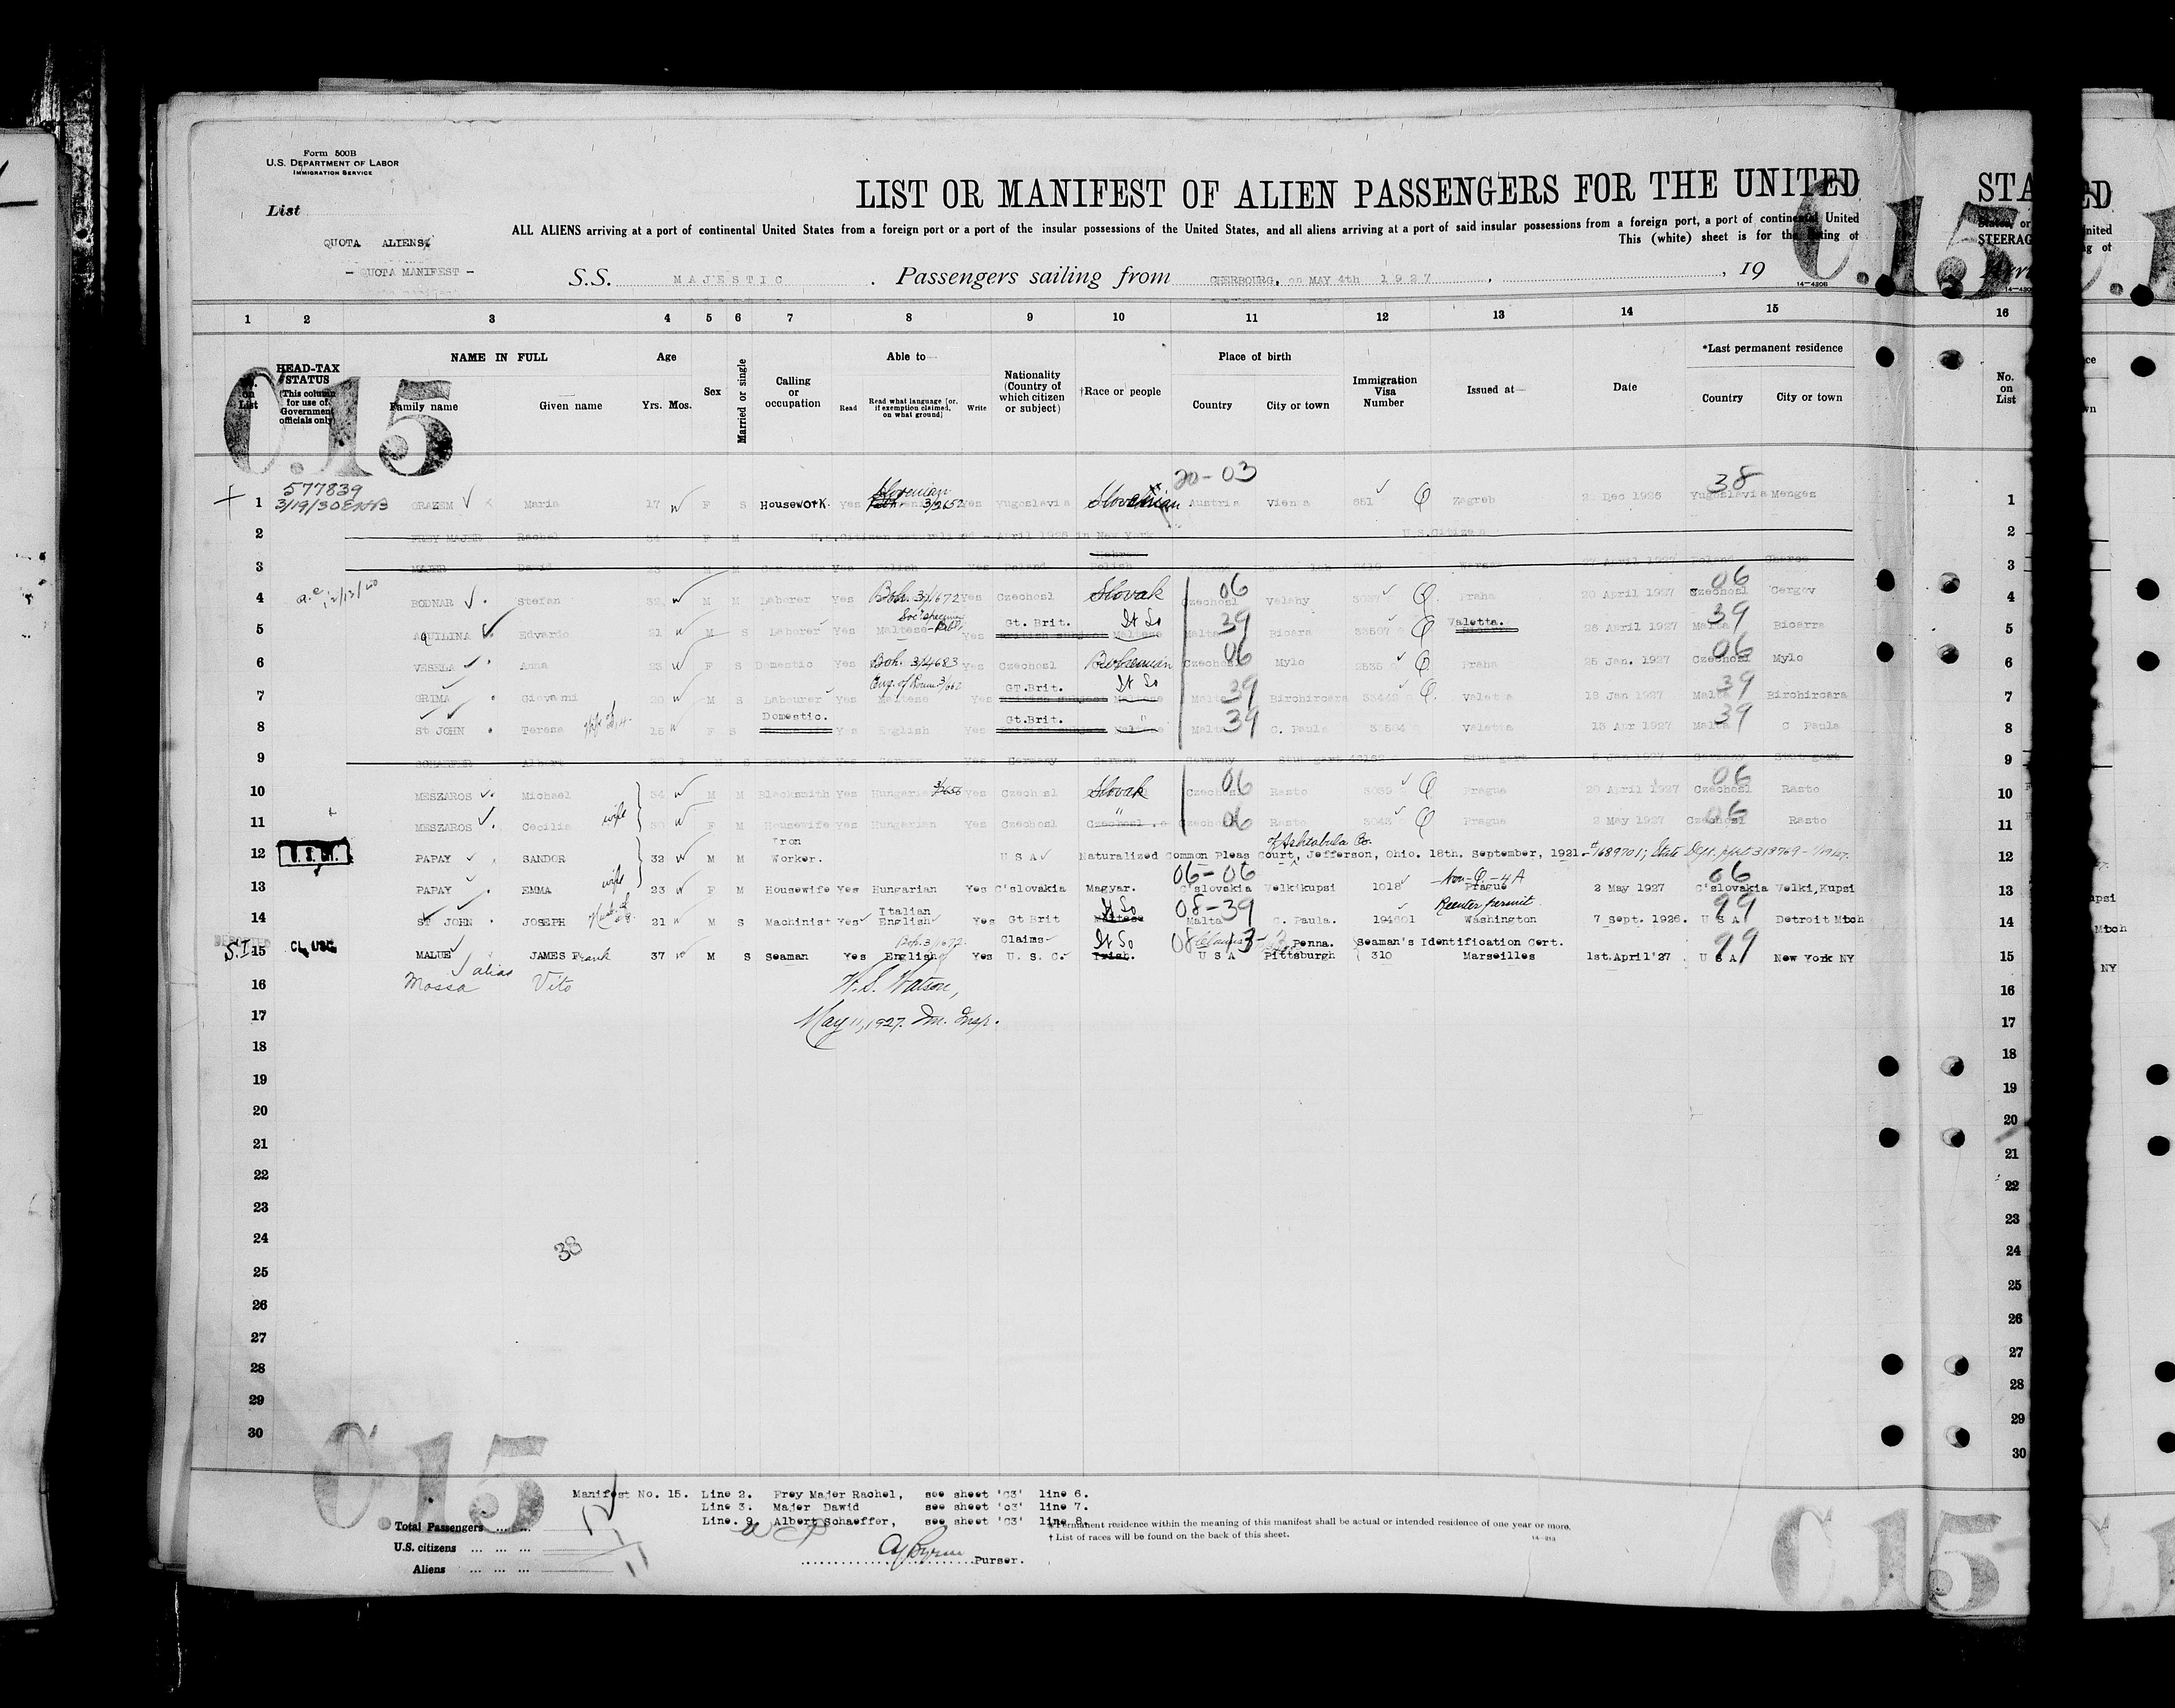 Form 500B
U.S. DEPARTMENT OF LABOR
IMMIGRATION SERVICE
List
LIST OR MANIFEST OF ALIEN PASSENGERS FOR THE UNITED STA
ALL ALIENS arriving at a port of continental United States from a foreign port or a port of the insular possessions of the United States, and all aliens arriving at a port of said insular possessions from a foreign port, a port of continental United
This (white) sheet is for the listing of STEERAG
QUOTA ALIENS
- QUOTA MANIFEST -
S.S. MAJESTIC. Passengers sailing from CHERBOURG, on MAY 4th 1927, 19
C.15
14-430B
1 2 3 4 5 6 7 8 9 10 11 12 13 14 15 16
No. on List
HEAD-TAX STATUS (This column for use of Government officials only)
NAME IN FULL
Family name Given name
Age
Yrs. Mos.
Sex
Married or single
Calling or occupation
Able to
Read
Read what language [or, if exemption claimed, on what ground]
Write
Nationality (Country of which citizen or subject)
†Race or people
Place of birth
Country City or town
Immigration Visa Number
Issued at
Date
*Last permanent residence
Country City or town
No. on List
C.15
20-03 38
577839
1 3/19/30 GRAZEM Maria 17 F S Housework Yes Slovenian Yes Yugoslavia Slovenian Austria Vienna 851 Q Zagreb Dec 1926 Yugoslavia Menges 1
2 FREY MAJER Rachel F M U.S. Citizen April 1926 in New York U.S. Citizen 2
Hebrew
3 MAJER David M Yes Polish Yes Poland Polish 27 April 1927 Poland 3
4 BODNAR Stefan 32 M M Laborer Yes Boh. 3/1672 Yes Czechosl Slovak Czechosl 06 Velahy Q Praha 20 April 1927 Czechosl 06 Cergov 4
5 AQUILINA Edvardo 21 M S Laborer Yes Maltese Yes Gt. Brit. British subject It So Maltese Malta 39 Bicara 33507 Q Valetta. 26 April 1927 Malta 39 Bicarra 5
6 VESELA Anna 23 F S Domestic Yes Boh. 3/4683 Yes Czechosl Bohemian Czechosl 06 Mylo 2535 Q Praha 25 Jan. 1927 Czechosl 06 Mylo 6
7 GRIMA Giovanni 20 M S Labourer Yes Maltese Yes GT.Brit. British subject It So Maltese Malta 39 Birchircara Q. Valetta 18 Jan 1927 Malta 39 Birchircara 7
8 St JOHN Teresa 15 F S Domestic. Yes English Yes Gt.Brit. British subject " Maltese Malta 39 C. Paula Valetta 13 Apr 1927 Malta 39 C Paula 8
9 SCHAEFFER Albert M S Yes German Yes Germany German Germany Stuttgart Stuttgart Germany Stuttgart 9
10 MESZAROS Michael 34 M M Blacksmith Yes Hungarian Yes Czechosl Slovak Czechosl 06 Rasto Q Prague 20 April 1927 Czechosl 06 Rasto 10
11 MESZAROS Cecilia wife 30 F M Housewife Yes Hungarian Yes Czechosl " Czechosl 06 Rasto Q Prague 2 May 1927 Czechosl 06 Rasto 11
of Ashtabula Co.
12 U.S.CIT. PAPAY SANDOR 32 M M Iron Worker. U S A Naturalized Common Pleas Court, Jefferson, Ohio. 18th. September, 1921. #1689701; State Dept. 12
06-06
13 PAPAY EMMA wife 23 F M Housewife Yes Hungarian Yes C'slovakia Magyar. C'slovakia Velkikupsi 1018 Non-Q-4A Prague 2 May 1927 C'slovakia 06 Velki,Kupsi 13
14 ST JOHN JOSEPH 21 M S Machinist Yes Italian English Yes Gt Brit It So Maltese 08-39 Malta C. Paula. 194601 Reenter permit Washington 7 Sept. 1926. U S A 99 Detroit Mich 14
S.I. 15 CL USC MALUE JAMES Frank 37 M S Seaman Yes English Yes Claims U. S. C. It So Irish. U S A Penna. Pittsburgh Seaman's Identification Cert. 310 Marseilles 1st.April'27 U S A 99 New York NY 15
alias
16 Mossa Vito W. S. Watson, 16
17 May 11, 1927. Im. Insp. 17
18 18
19 19
20 20
21 21
22 22
23 23
24 38 24
25 25
26 26
27 27
28 28
29 29
30 30
C.15
Manifest No. 15. Line 2. Frey Major Rachel, see sheet 'C3' line 6.
Line 3. Major Dawid see sheet 'c3' line 7.
Line. 9 Albert Schaeffer, see sheet 'C3' line 8.
Total Passengers 12
U.S. citizens 1
Aliens 11
Purser.
* Permanent residence within the meaning of this manifest shall be actual or intended residence of one year or more.
† List of races will be found on the back of this sheet.
C.15